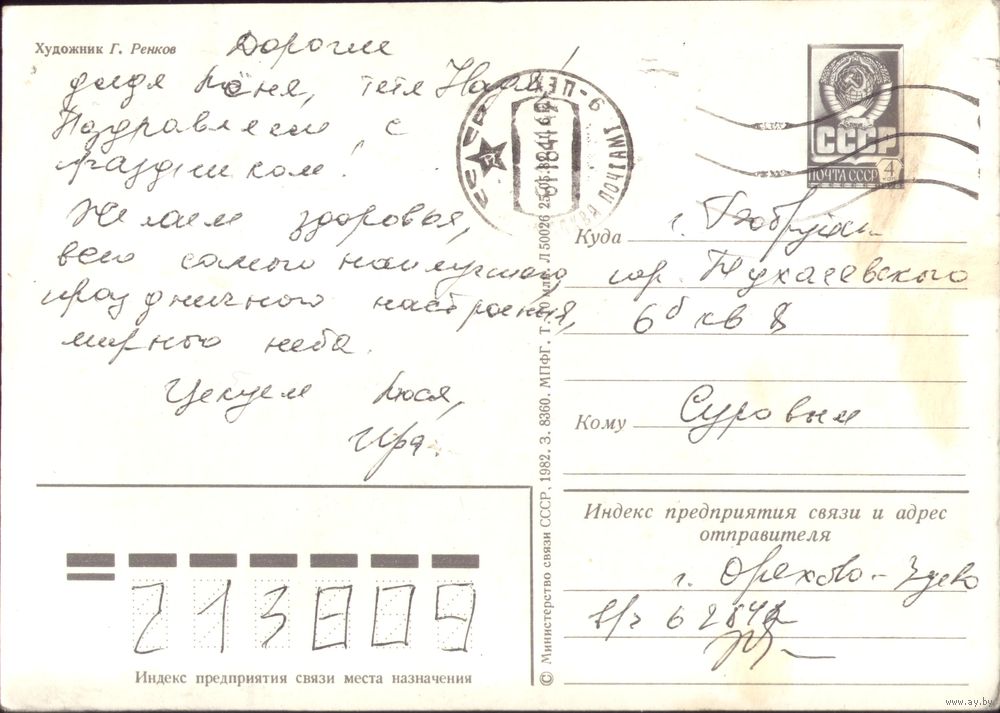 Художник Г. Ренков
Дорогие
дядя Лёня, тётя Надя!
Поздравляем с
праздником!
Желаем здоровья,
всего самого наилучшего,
праздничного настроения,
мирного неба.
Целуем Люся,
Ира.
СССР
ПОЧТА СССР 4 коп
Куда г. Бобруйск
гор. Тухачевского
6б кв 8
Кому Суровым
Индекс предприятия связи и адрес
отправителя
г. Орехово-Зуево
в/ч
213809
Индекс предприятия связи места назначения
© Министерство связи СССР, 1982. З. 8360. МПФГ. Л 50026 25.05.82
www.ay.by